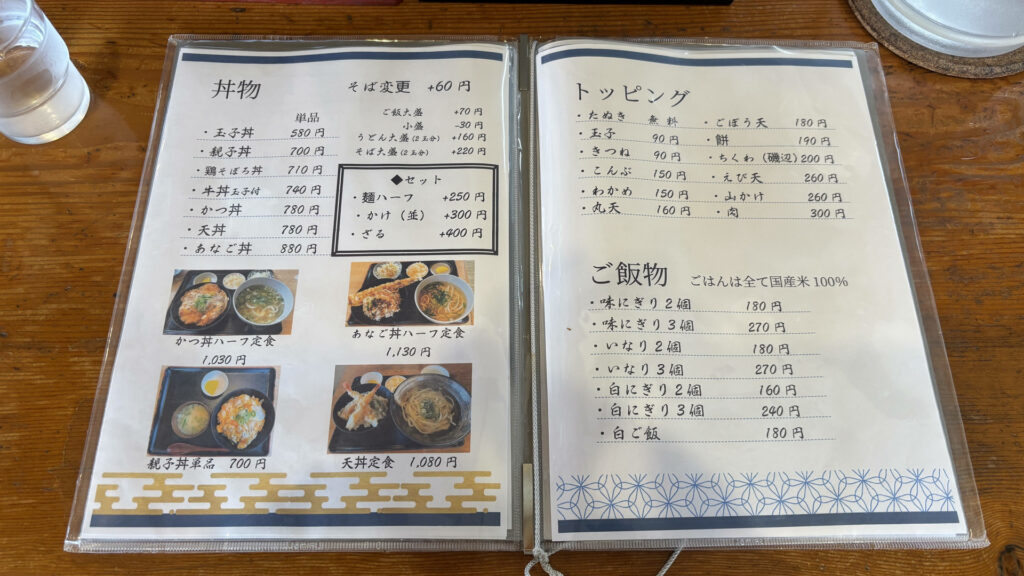 丼物
そば変更 +60円
単品
・玉子丼 580円
・親子丼 700円
・鶏そぼろ丼 710円
・牛丼玉子付 740円
・かつ丼 780円
・天丼 780円
・あなご丼 880円
ご飯大盛 +70円
小盛 -30円
うどん大盛(2玉分) +160円
そば大盛(2玉分) +220円
◆セット
・麺ハーフ +250円
・かけ(並) +300円
・ざる +400円
かつ丼ハーフ定食
1,030円
あなご丼ハーフ定食
1,130円
親子丼単品 700円
天丼定食 1,080円
トッピング
・たぬき 無料
・玉子 90円
・きつね 90円
・こんぶ 150円
・わかめ 150円
・丸天 160円
・ごぼう天 180円
・餅 190円
・ちくわ(磯辺) 200円
・えび天 260円
・山かけ 260円
・肉 300円
ご飯物 ごはんは全て国産米100%
・味にぎり2個 180円
・味にぎり3個 270円
・いなり2個 180円
・いなり3個 270円
・白にぎり2個 160円
・白にぎり3個 240円
・白ご飯 180円